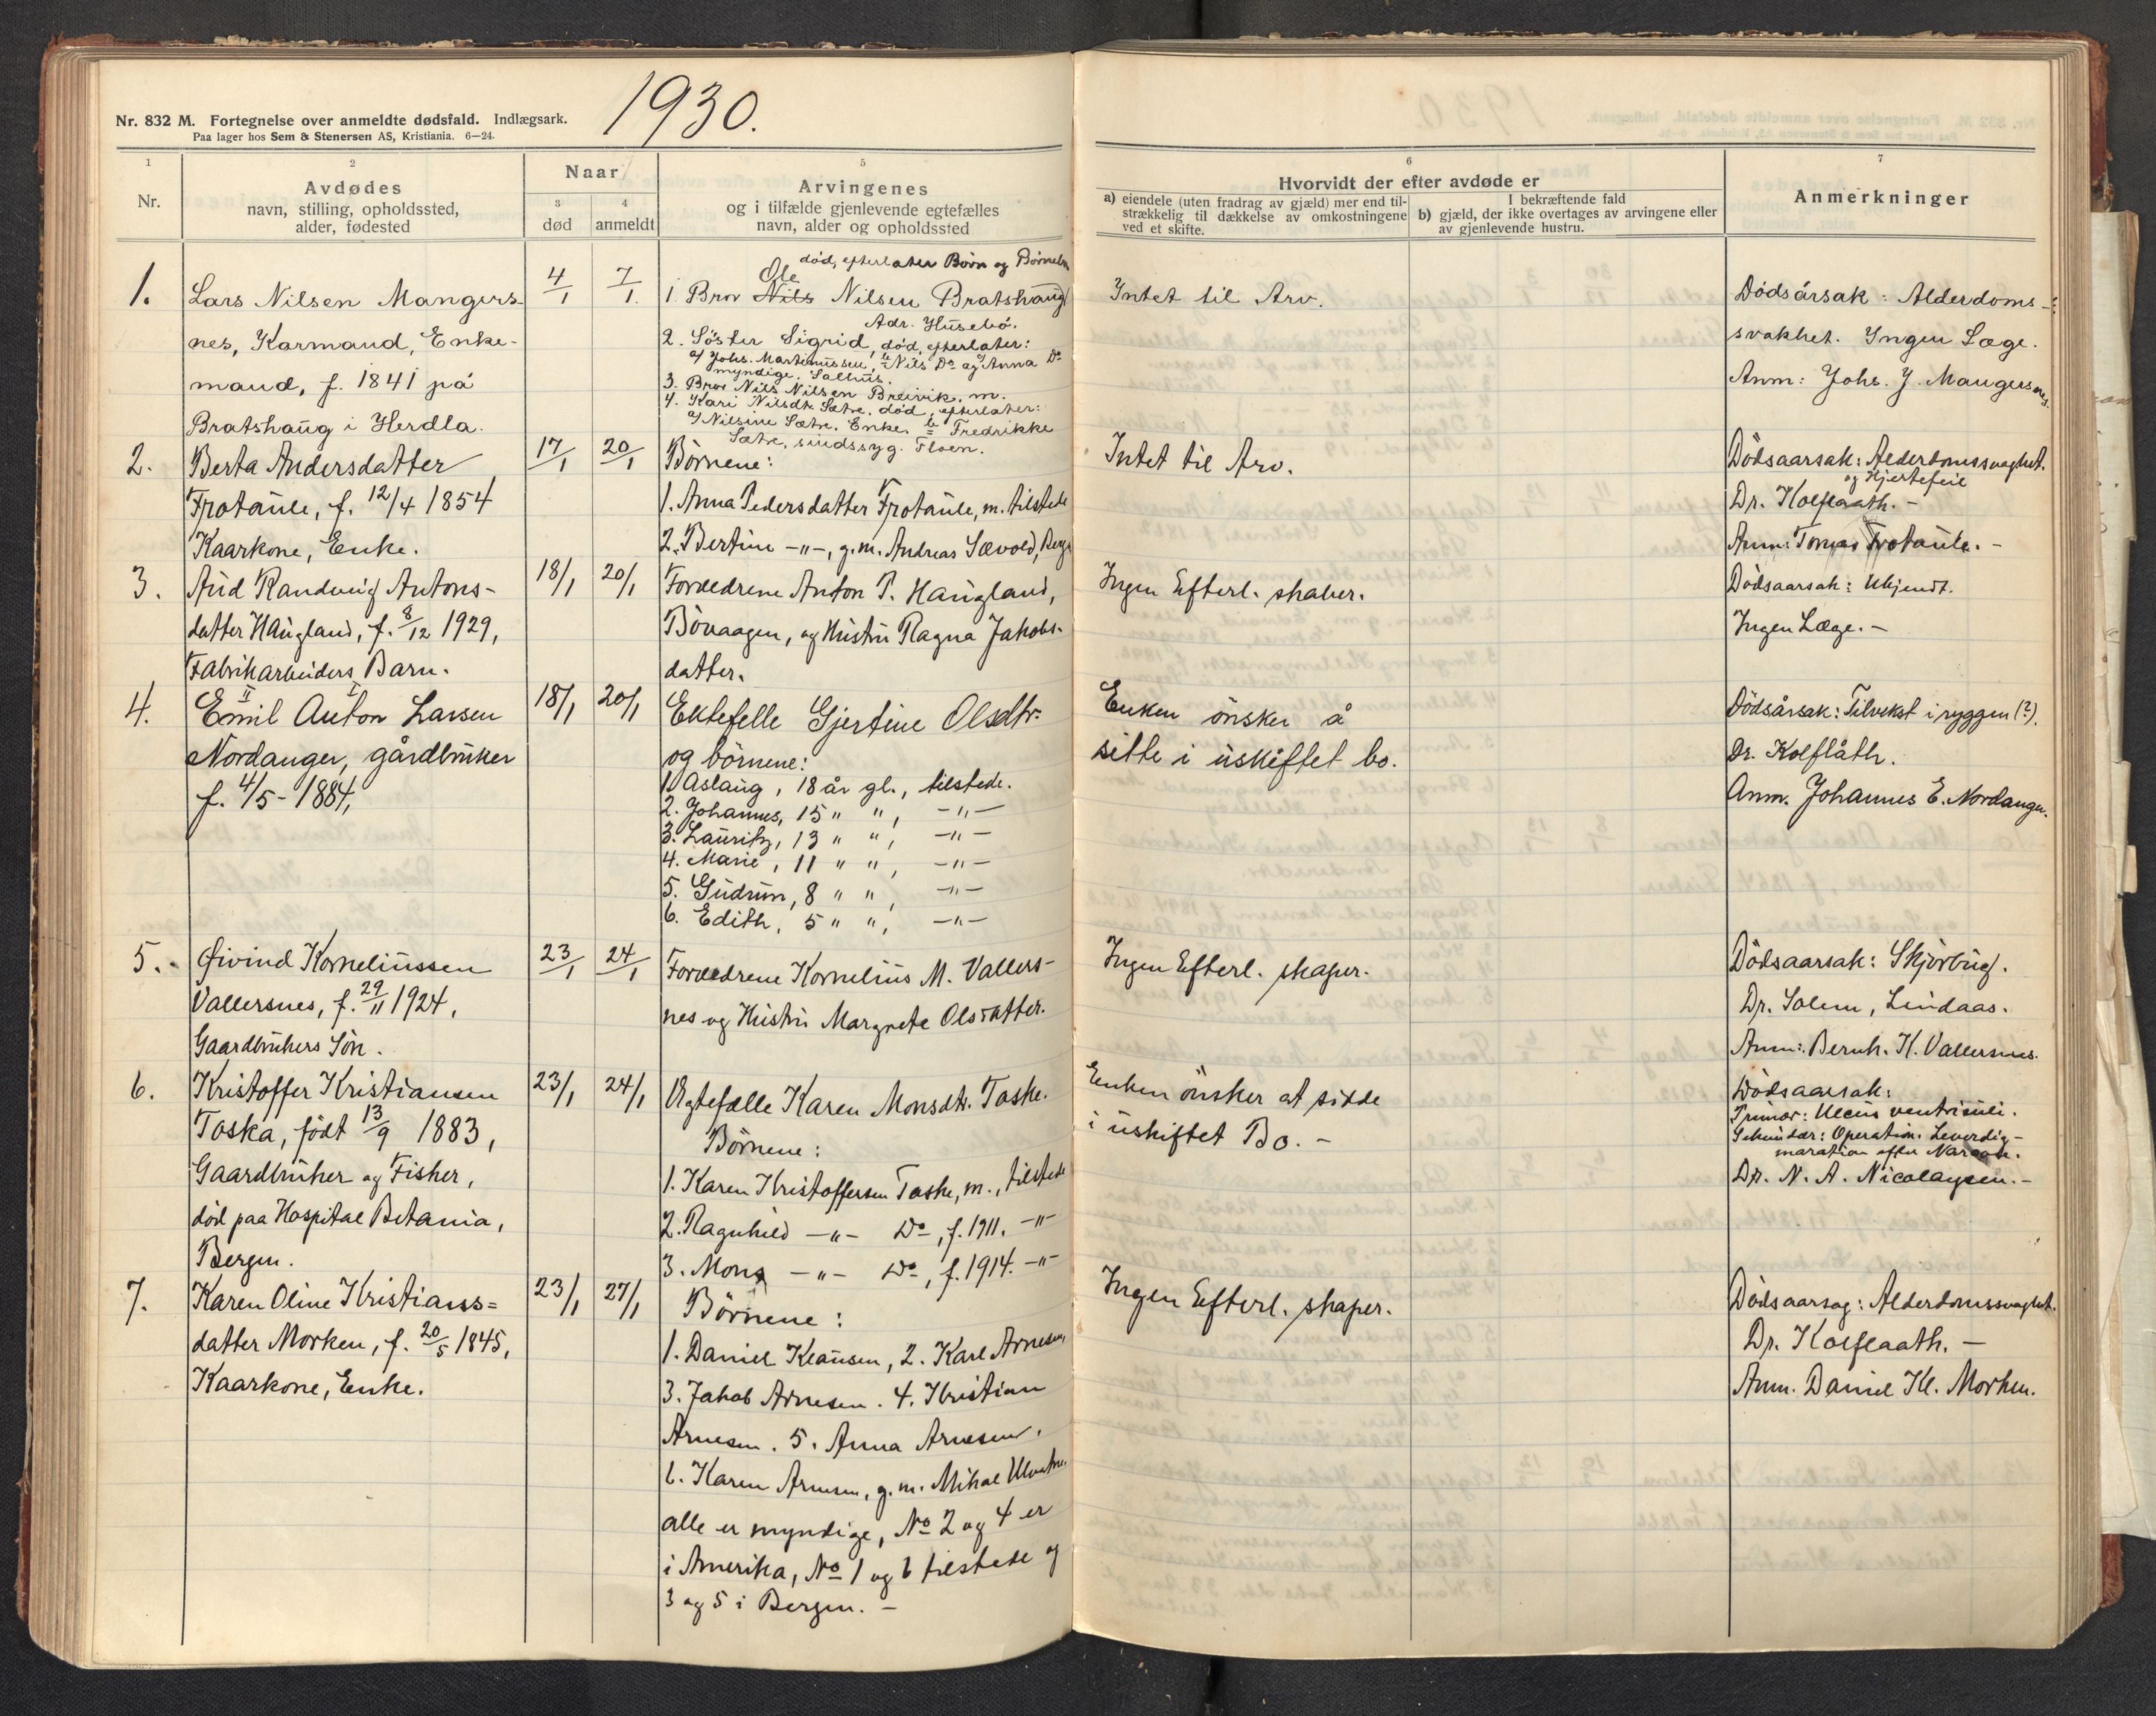 1930.
Nr. 832 M. Fortegnelse over anmeldte dødsfald. Indlægsark.
Paa lager hos Sem & Stenersen AS, Kristiania. 6—24.
1
Nr.
2
Avdødes
navn, stilling, opholdssted,
alder, fødested
Naar
3
død
4
anmeldt
5
Arvingenes
og i tilfælde gjenlevende egtefælles
navn, alder og opholdssted
6
Hvorvidt der efter avdøde er
a) eiendele (uten fradrag av gjæld) mer end til-
strækkelig til dækkelse av omkostningene
ved et skifte.
I bekræftende fald
b) gjæld, der ikke overtages av arvingene eller
av gjenlevende hustru.
7
Anmerkninger
1.
Lars Nilsen Mangers-
nes, Karmand, Enke-
mand, f. 1841 på
Bratshaug i Herdla.
4/1
7/1.
død, efterlater Børn og Børnebn
Ole
1. Bror Nils Nilsen Bratshaug
Adr. Husebö.
2. Söster Sigrid, död, efterlater:
a/ Johs. Martinussen, b/ Nils Do og Anna Do
myndige. Salhus.
3. Bror Nils Nilsen Breivik. m.
4. Kari Nilsdtr. Sætre, död, efterlater:
a/ Nilsine Sætre. Enke. b/ Fredrikke
Sætre, sindssyg. Floen.
Intet til Arv.
Dödsårsak: Alderdoms-
svakhet. Ingen Læge.
Anm: Johs. J. Mangersnes.
2.
Berta Andersdatter
Frotaule, f. 12/4 1854
Kaarkone, Enke.
17/1
20/1
Börnene:
1. Anna Pedersdatter Frotaule, m. tilstede
2. Bertine -"-, g.m. Andreas Sævold, Berg.
Intet til Arv.
Dödsaarsak: Alderdomssvaghet.
og Hjertefeil
Dr. Kolflaath. -
Anm: Tomas Frotaule. -
3.
Aud Randveig Antons-
datter Haugland, f. 8/12 1929,
Fabrikarbeiders Barn.
18/1
20/1
Forældrene Anton P. Haugland,
Bövaagen, og Hustru Ragna Jakobs-
datter.
Ingen Efterl. skaber.
Dödsaarsak: Ukjendt.
Ingen Læge. -
4.
II I
Emil Anton Larsen
Nordanger, gårdbruker
f. 4/5 - 1884,
18/1
20/1
Ektefelle Gjertine Olsdtr.
og börnene:
1. Aslaug, 18 år gl., tilstede.
2. Johannes, 15 " ", -"-
3. Lauritz, 13 " ", -"-
4. Marie, 11 " ", -"-
5. Gudrun, 8 " ", -"-
6. Edith, 5 " ", -"-
Enken önsker å
sitte i uskiftet bo.
Dödsårsak: Tilvekst i ryggen (?).
Dr. Kolflåth.
Anm. Johannes E. Nordanger.
5.
Øivind Korneliussen
Vallersnes, f. 29/11 1924,
Gaardbrukers Sön.
23/1
24/1
Forældrene Kornelius M. Vallers-
nes og Hustru Margrete Olsdatter.
Ingen Efterl. skaper.
Dödsaarsak: Skjörbug.
Dr. Solem, Lindaas.
Anm: Bernh. K. Vallersnes.
6.
Kristoffer Kristiansen
Toska, født 13/9 1883,
Gaardbruker og Fisker,
död paa Hospital Betania,
Bergen.
23/1
24/1
Ægtefælle Karen Monsdtr. Toske.
Börnene:
1. Karen Kristoffersen Toske, m., tilstede
2. Ragnhild -"- Do, f. 1911. -"-
3. Mons -"- Do, f. 1914. -"-
Enken önsker at sidde
i uskiftet Bo. -
Dödsaarsak:
Primær: Ulcus ventriculi.
Sekundær: Operation. Leverdig-
maration efter Narcose.
Dr. N. A. Nicolaysen. -
7.
Karen Oline Kristians=
datter Morken, f. 20/5 1845,
Kaarkone, Enke.
23/1
27/1
Börnene:
1. Daniel Klausen, 2. Karl Arnesen,
3. Jakob Arnesen. 4. Kristian
Arnesen. 5. Anna Arnesen.
6. Karen Arnesen, g. m. Mikal
alle er myndige, No 2 og 4 er
i Amerika, No 1 og 6 tilstede og
3 og 5 i Bergen. -
Ingen Efterl. skaper.
Dödsaarsag: Alderdomssvaghet.
Dr. Kolflaath. -
Anm. Daniel Kl. Morken.